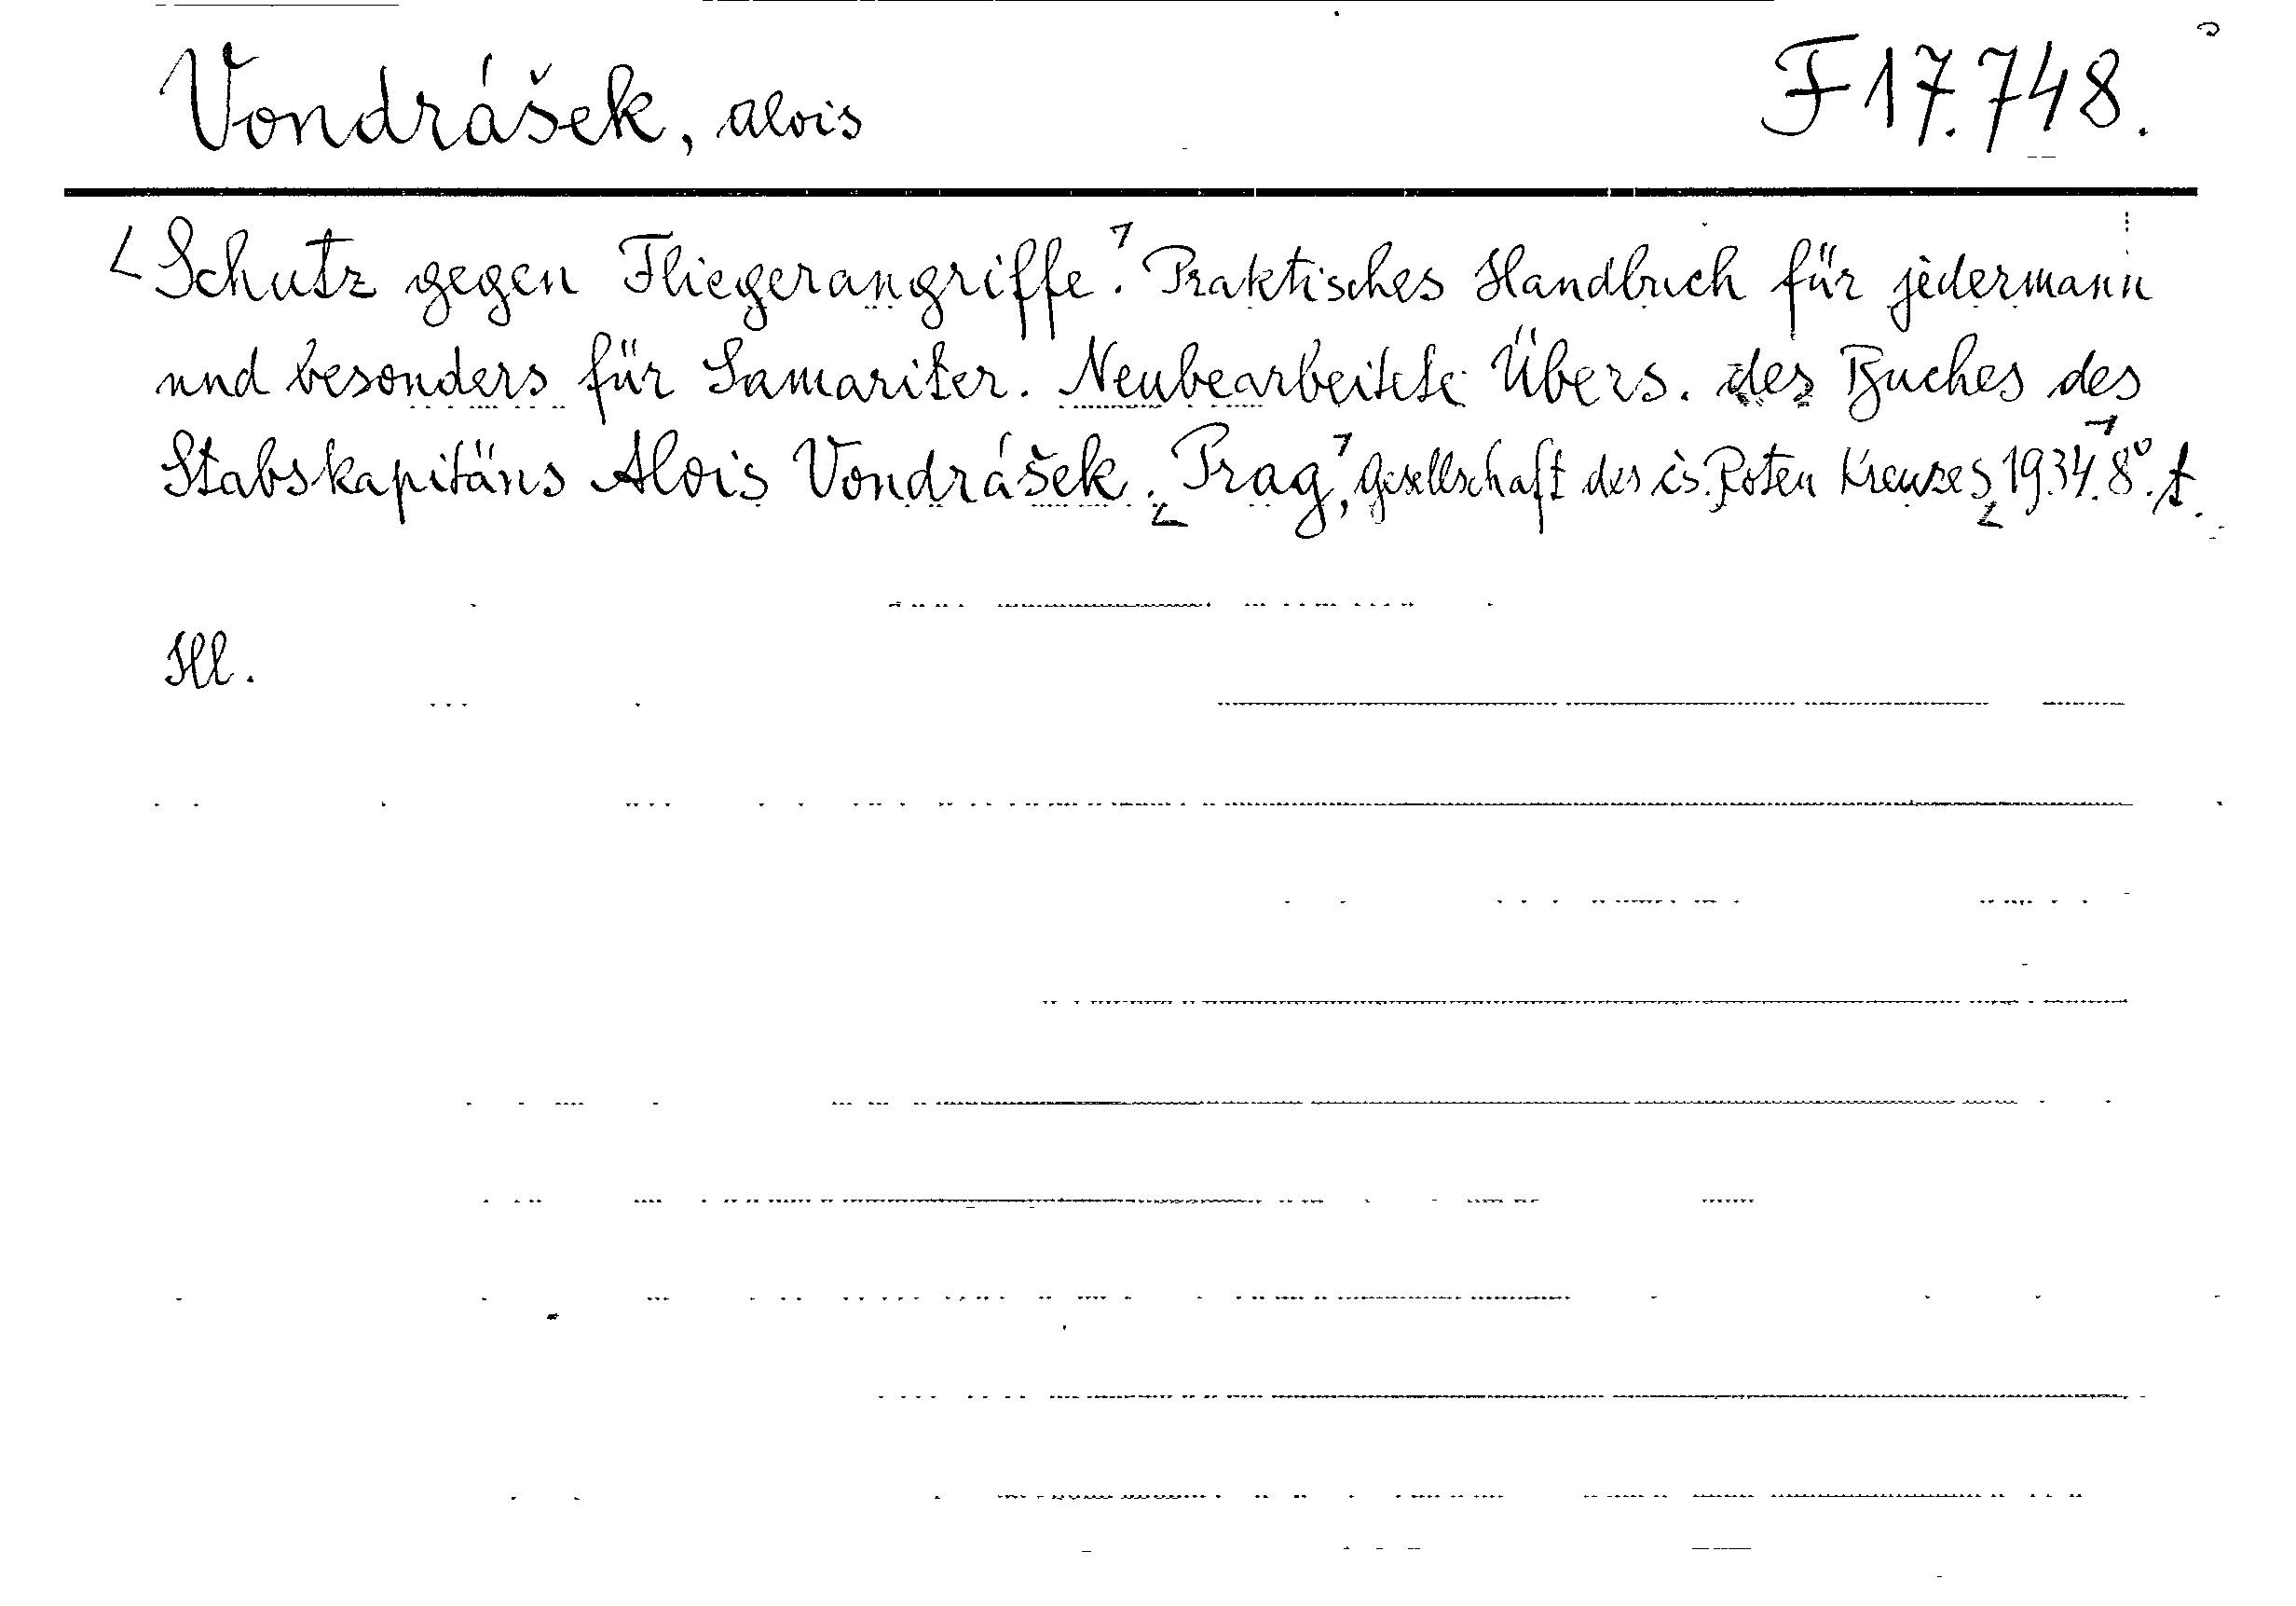 Vondrášek, Alois F 17.748.
Schutz gegen Fliegerangriffe. Praktisches Handbuch für jedermann
und besonders für Samariter. Neubearbeitete Übers. des Buches des
Stabskapitäns Alois Vondrášek. Prag, Gesellschaft des čs. Roten Kreuzes 1934. 8°.
Ill.